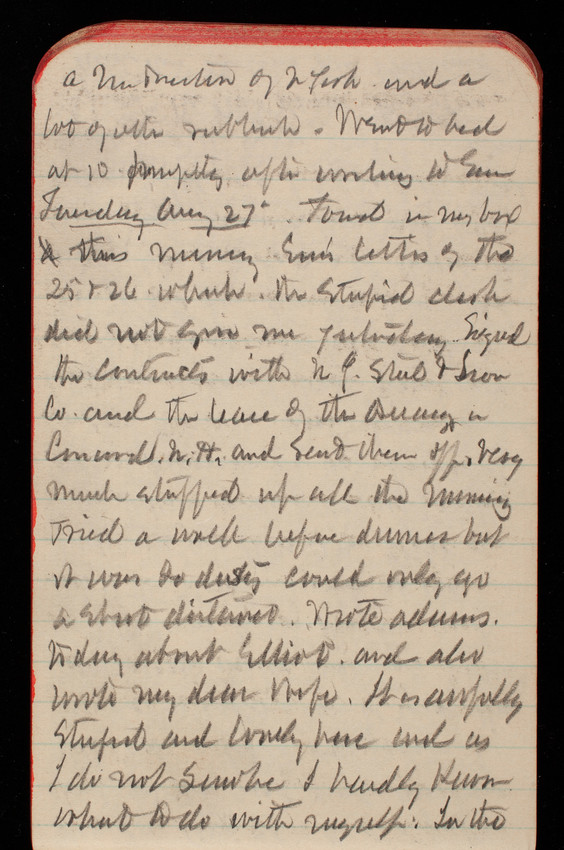 a of N York and a
lot of other rubbish. Went to bed
at 10 promptly after working to 9 am
Tuesday Aug 27". Found in my box
this morning Em's letters of the
25 & 26 which the stupid clerk
did not give me yesterday. Signed
the contracts with N J. Steel & Iron
Co. and the lease of the in
Concord. N. H. and send them off. Very
much stuffed up all the morning
Tried a walk before dinner but
it was so dusty could only go
a short distance. Wrote Adams.
today about Elliot. and also
wrote my dear Wife. It is awfully
stupid and lonely here and as
I do not smoke I hardly know
what to do with myself. In the